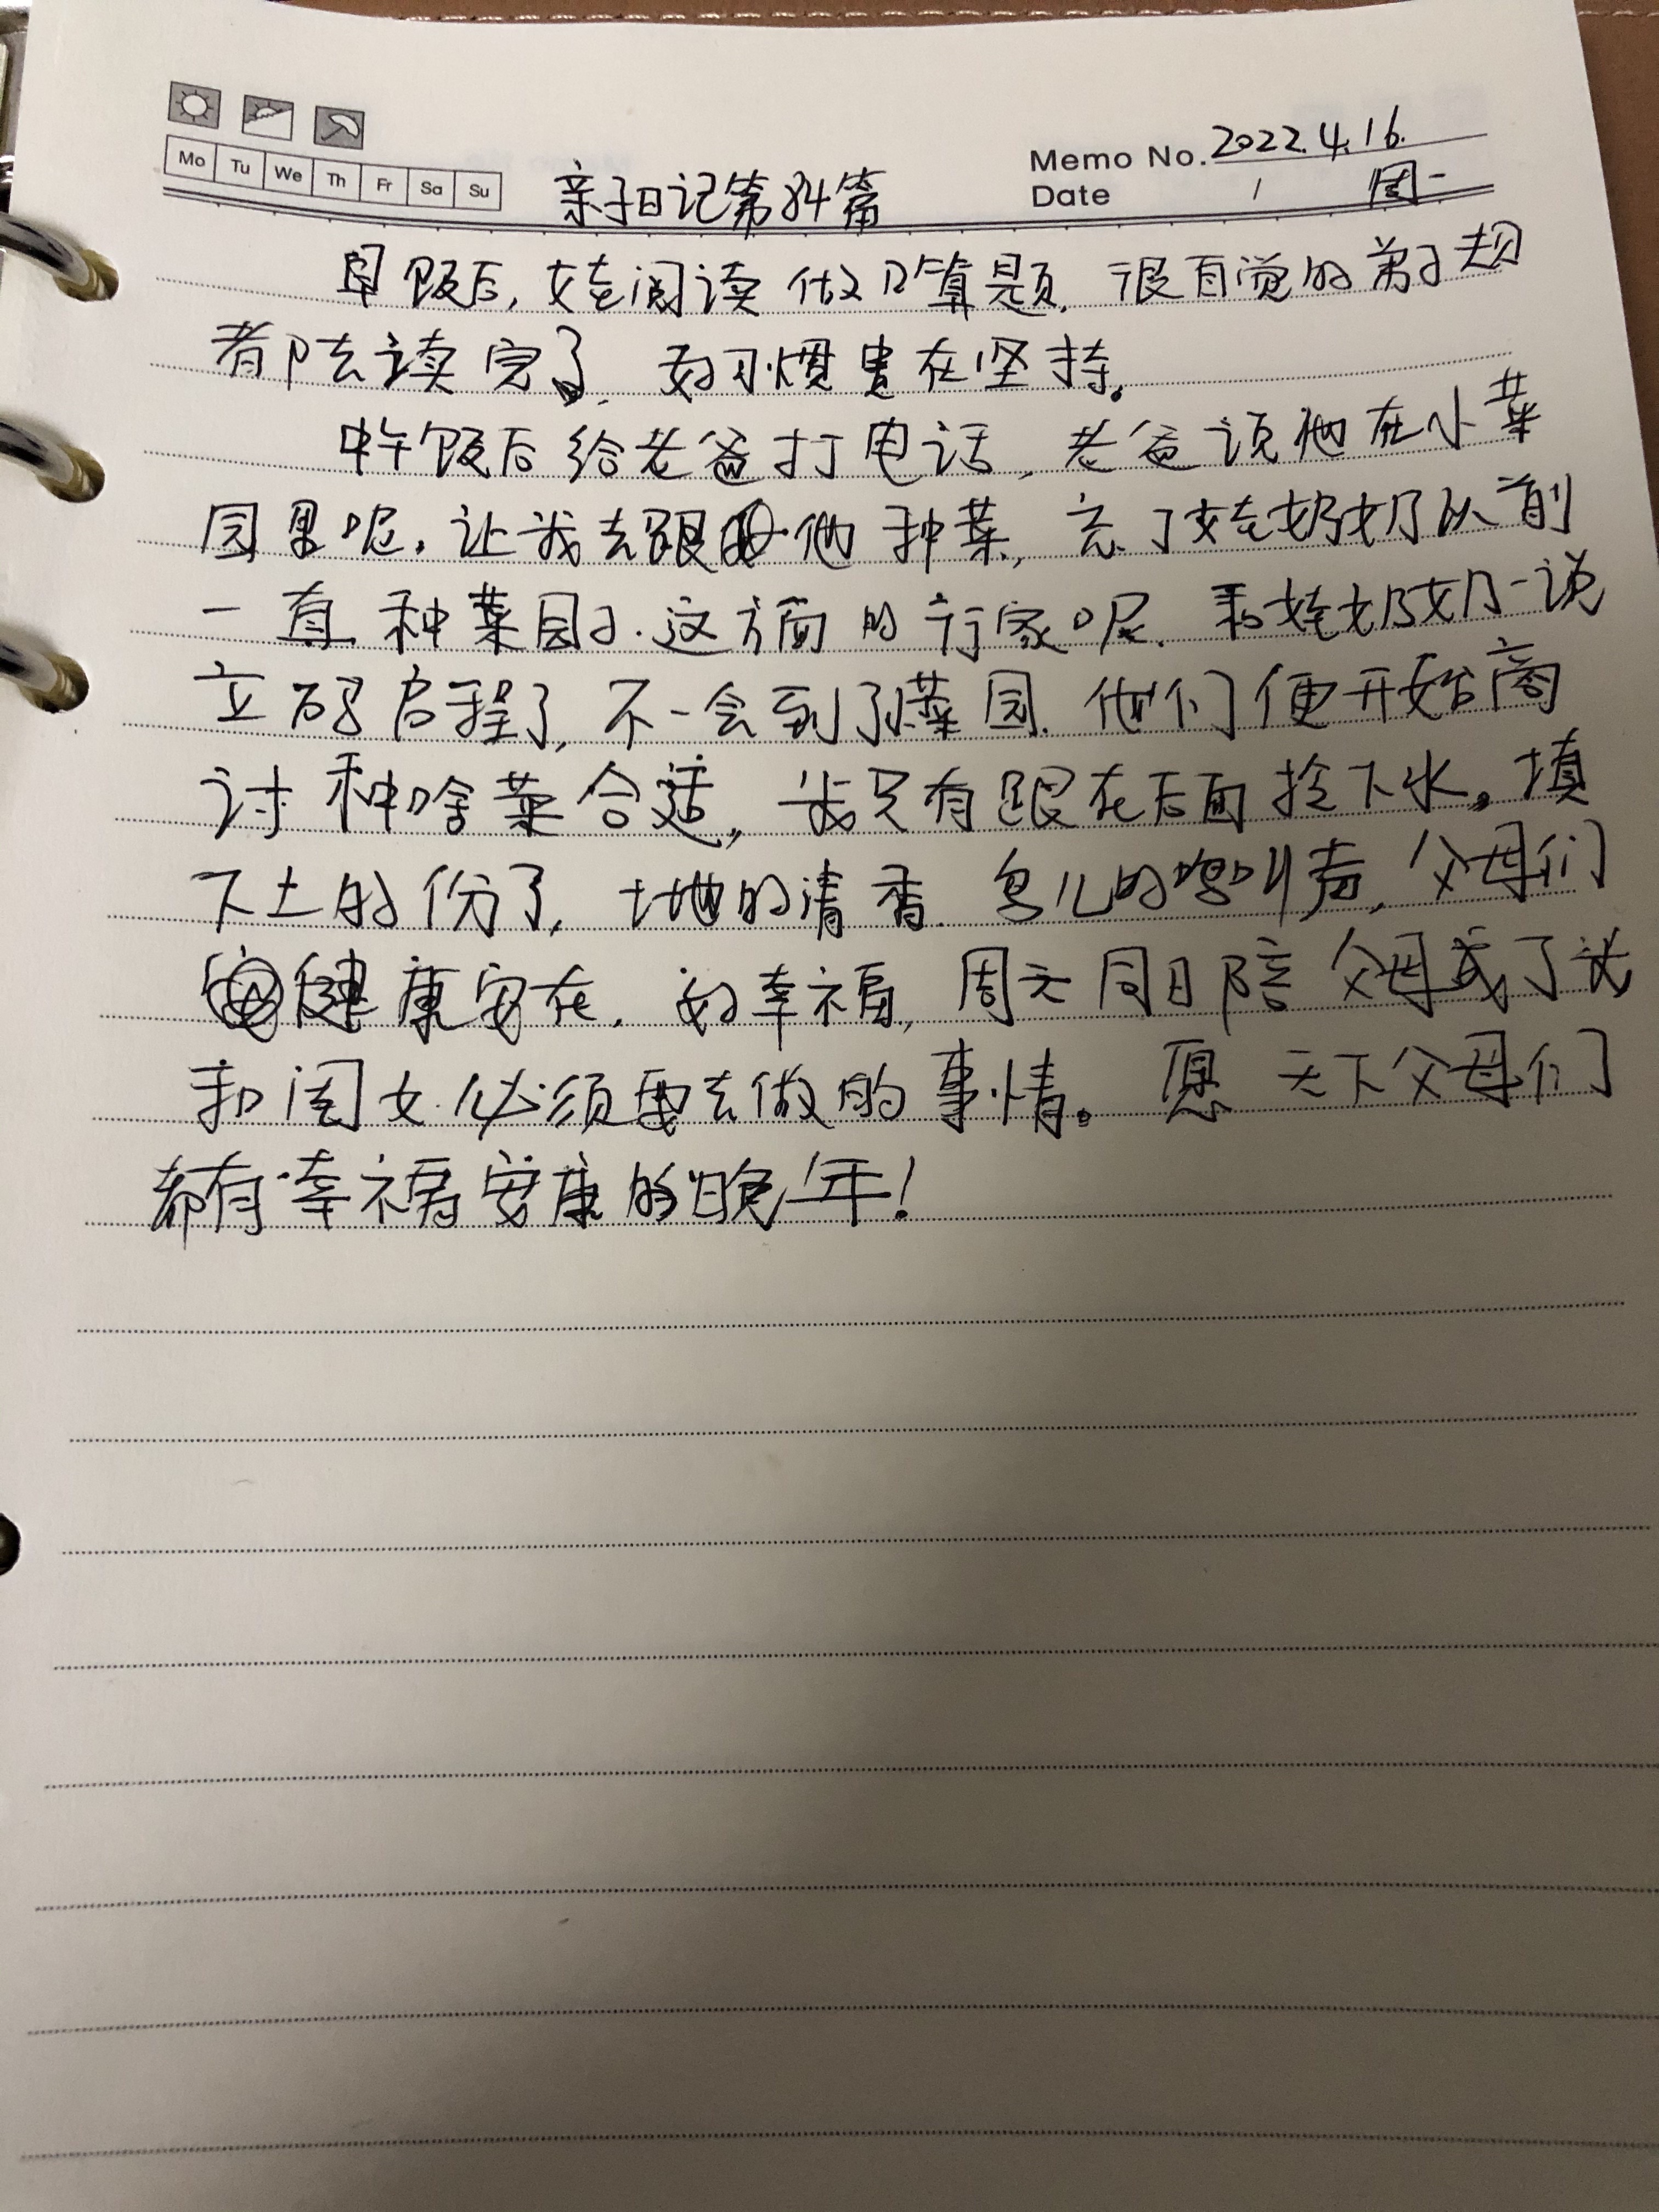 Mo Tu We Th Fr Sa Su
Memo No. 2022.4.16.
Date / 周一
亲子日记第84篇
早饭后,女娃阅读做口算题.很自觉的弟子规
都去读完了.好习惯贵在坚持。
中午饭后给老爸打电话,老爸说他在小菜
园里呢,让我去跟他种菜,忘了女娃奶奶以前
一直种菜园子.这方面的行家呢.和女娃奶奶一说
立码启程了,不一会到了小菜园.他们便开始商
讨种啥菜合适,我只有跟在后面拎下水。填
下土的份了,土地的清香.鸟儿的鸣叫声,父母们
健康安在.好幸福,周天同日陪父母成了我
和闺女必须要去做的事情。愿天下父母们
都有幸福安康的晚年!